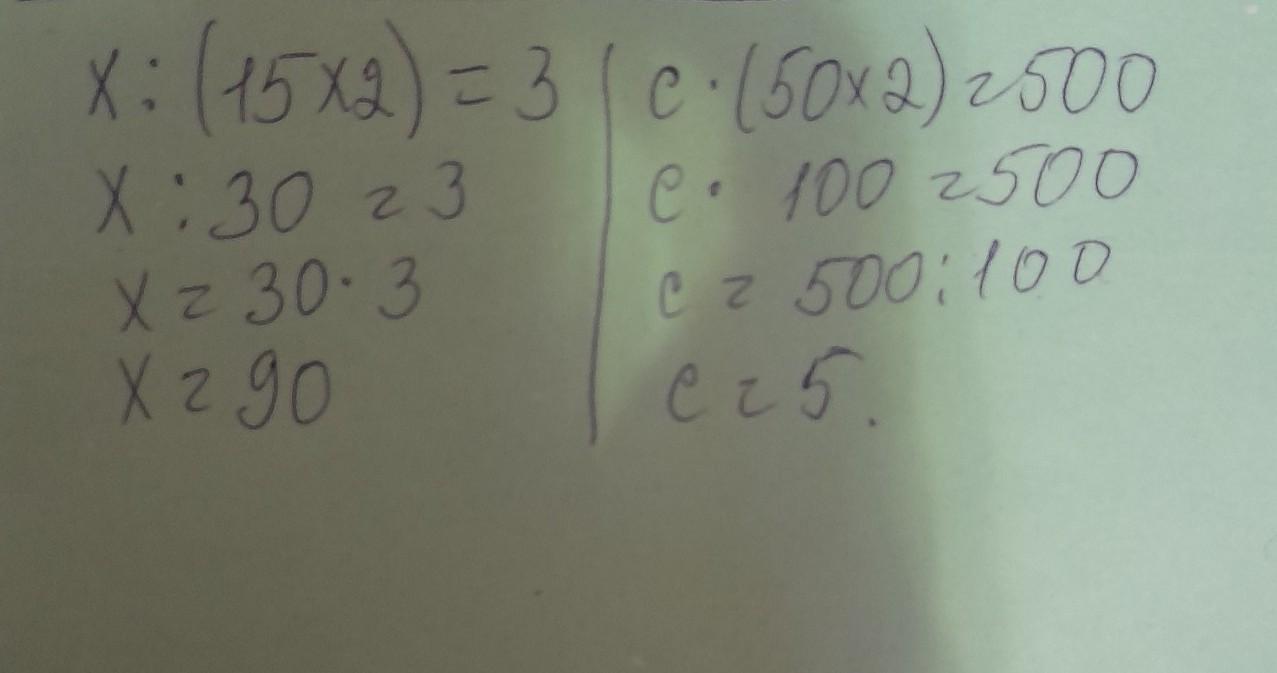 x : (15 x 2) = 3
x : 30 = 3
x = 30 · 3
x = 90
c · (50 x 2) = 500
c · 100 = 500
c = 500 : 100
c = 5.